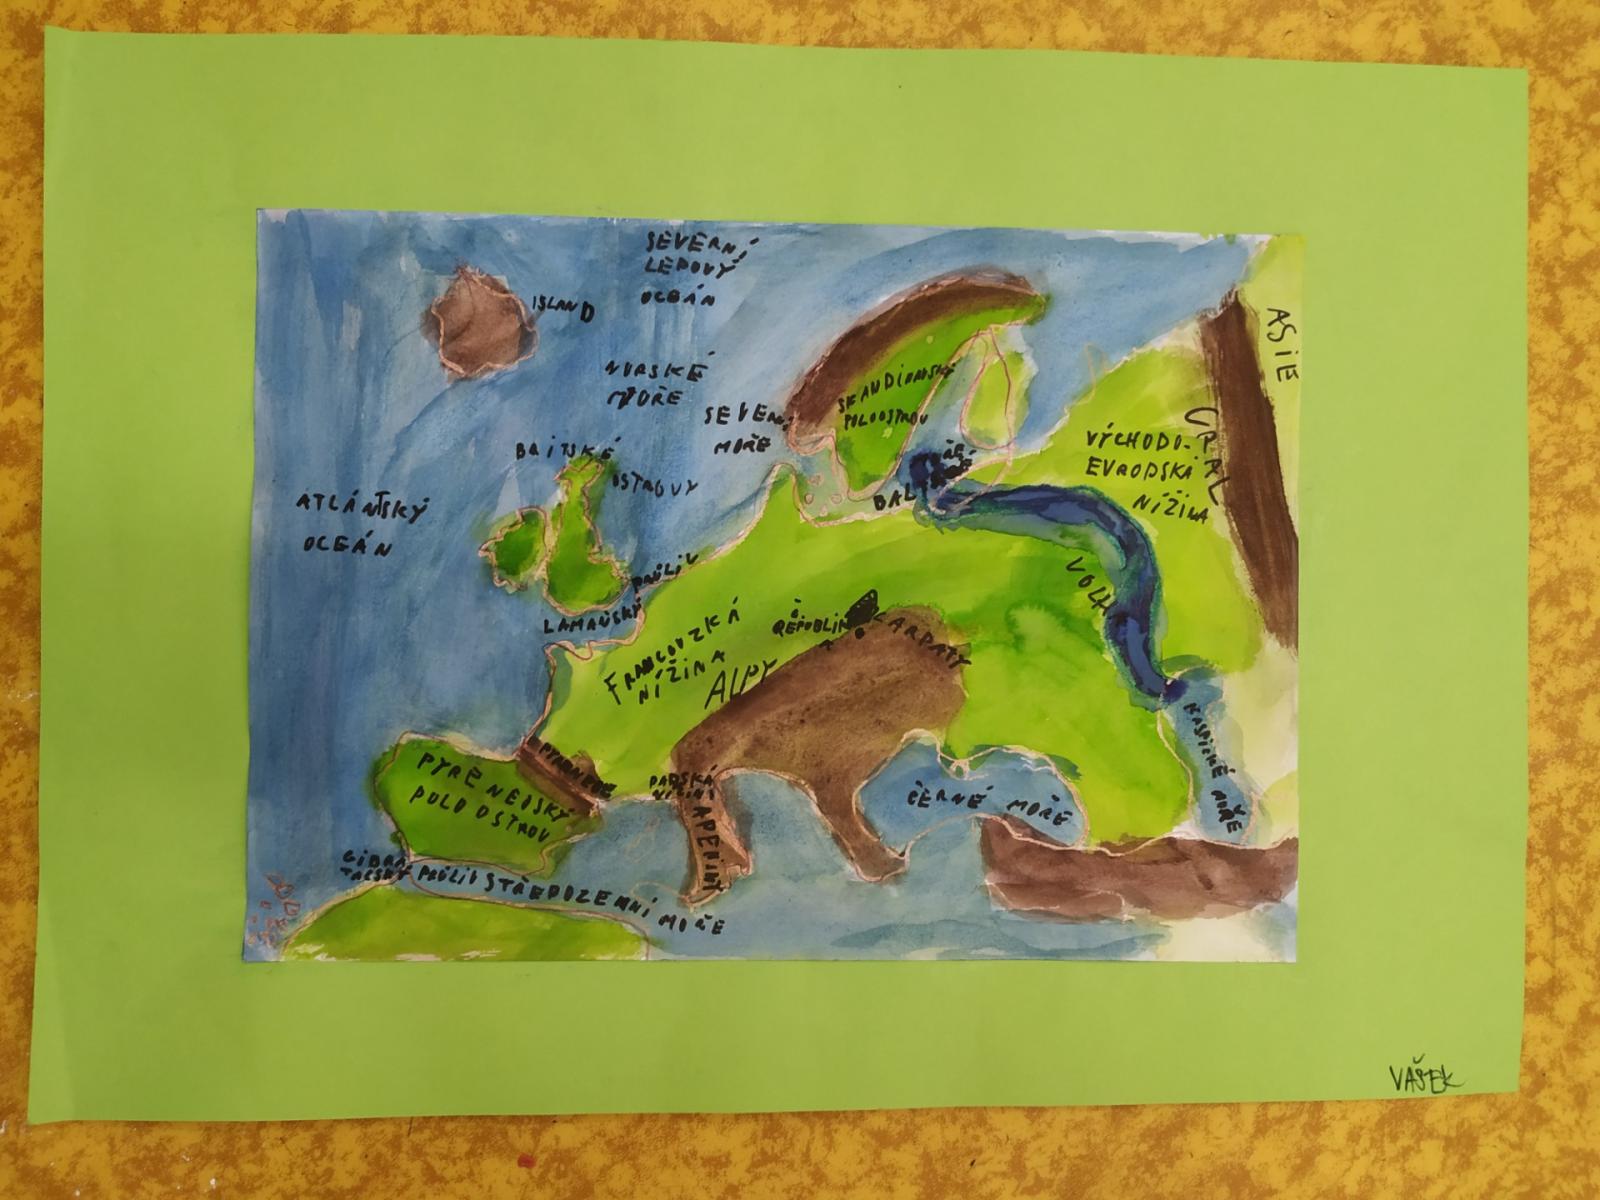 SEVERNÍ
LEDOVÝ
OCEÁN
ISLAND
ASIE
NORSKÉ
MOŘE
SEVERNÍ
MOŘE
SKANDINÁVSKÝ
POLOOSTROV
URAL
VÝCHODO-
EVROPSKÁ
NÍŽINA
BRITSKÉ
OSTROVY
ATLANTSKÝ
OCEÁN
BAL
PRŮLIV
LAMANŠSKÝ
VOLHA
Č.
REPUBLIKA
KARPATY
FRANCOUZKÁ
NÍŽINA
ALPY
PYRENEJE
PYRENEJSKÝ
POLOOSTROV
PADSKÁ
NÍŽINA
APENINY
ČERNÉ MOŘE
KASPICKÉ MOŘE
GIBRAL
TARSKÝ PRŮLIV
STŘEDOZEMNÍ MOŘE
VAŠEK